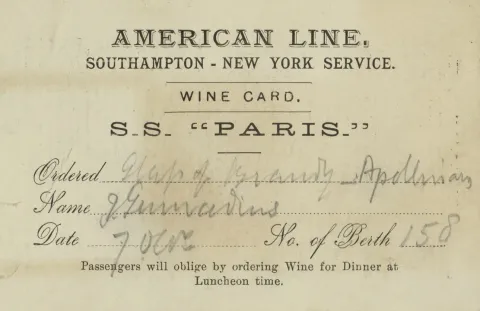 AMERICAN LINE.
SOUTHAMPTON - NEW YORK SERVICE.
WINE CARD.
S.S. “PARIS.”
Ordered Glass of Brandy - Apollinaris
Name J Gennadius
Date 7 No. of Berth 158
Passengers will oblige by ordering Wine for Dinner at
Luncheon time.